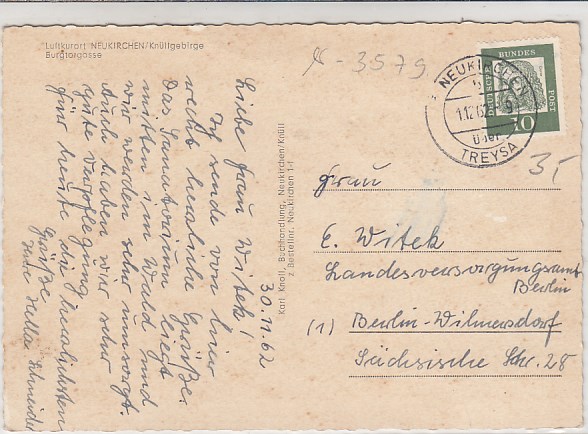 Luftkurort NEUKIRCHEN/Knüllgebirge
Burgtorgasse
30.11.62
Liebe Frau Witek!
Ich sende von hier
recht herzliche Grüße.
Das Sanatorium liegt
mitten im Wald und
wir werden sehr umsorgt.
Auch haben wir sehr
gute Verpflegung
Für heute die herzlichsten
Grüße
Ihre Schneider
Karl Knoll, Buchhandlung, Neukirchen/Knüll
z Bestellnr. Neukirchen 1-f
x - 3579
NEUKIRCHEN
1.12.62
über
TREYSA
DEUTSCHE BUNDESPOST
10
35
Frau
E. Witek
Landesversorgungsamt
Berlin
(1) Berlin-Wilmersdorf
Sächsische Str. 28